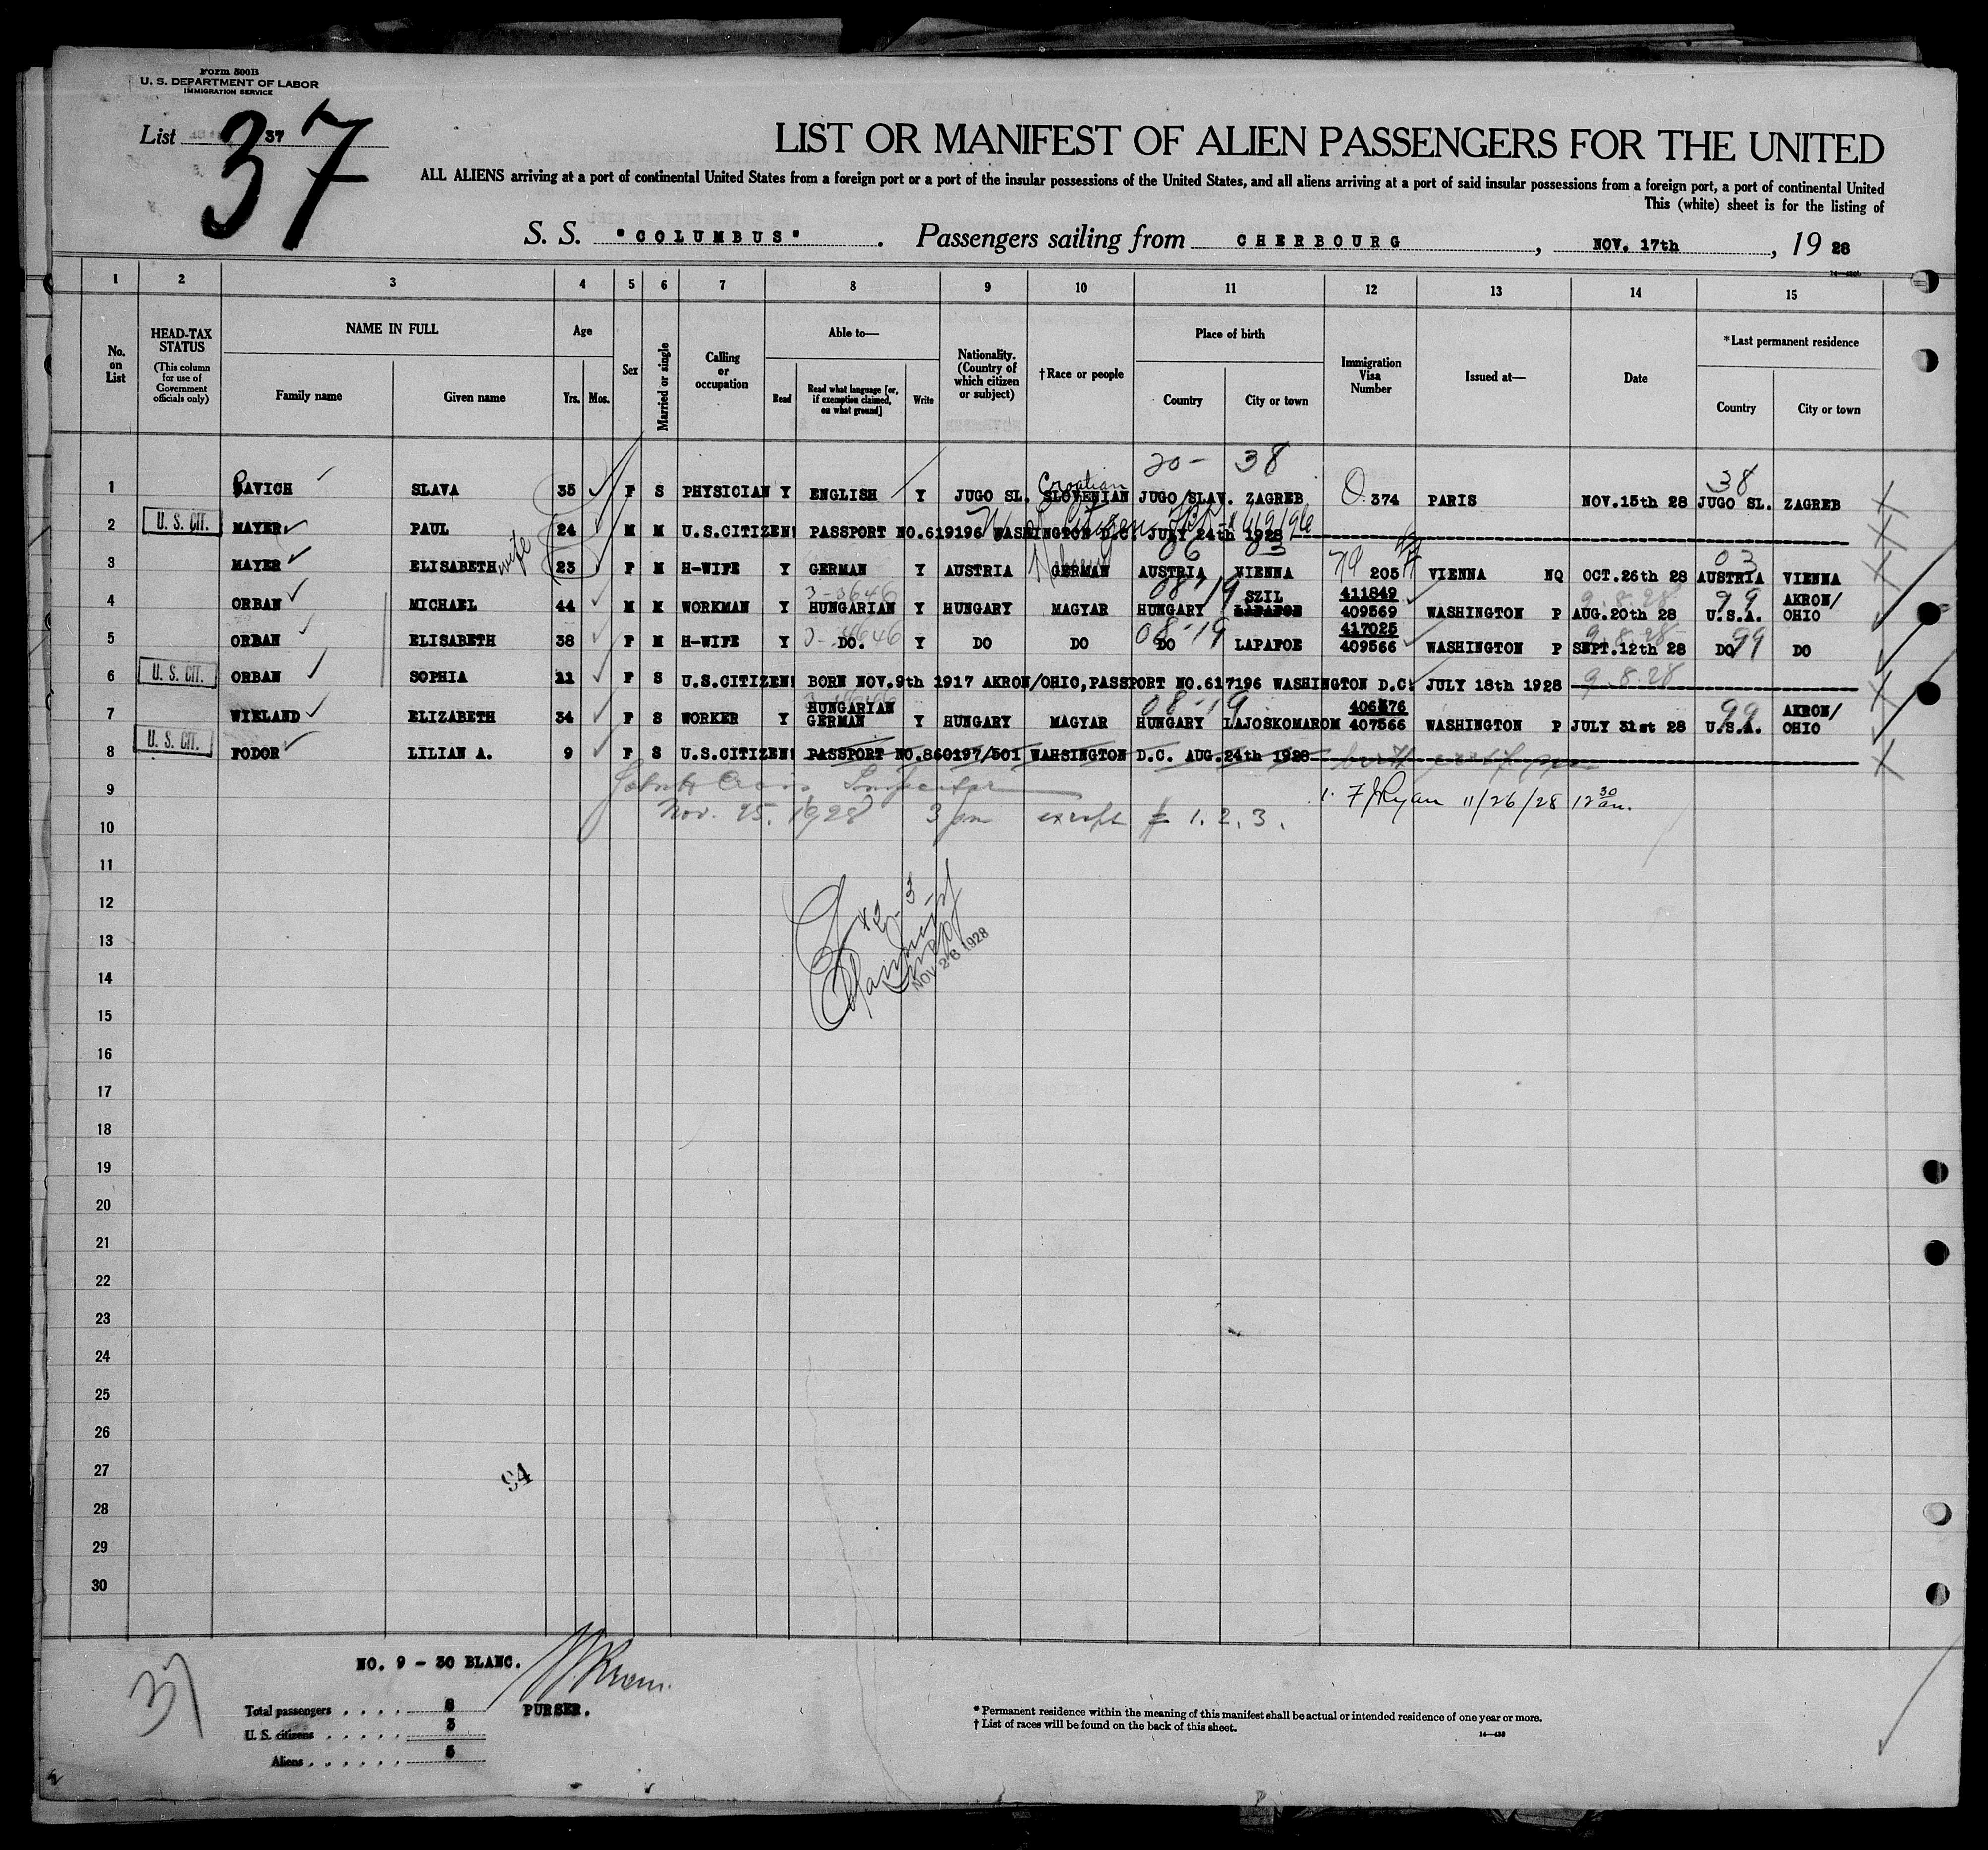 Form 500B
U. S. DEPARTMENT OF LABOR
IMMIGRATION SERVICE
List 37
37
LIST OR MANIFEST OF ALIEN PASSENGERS FOR THE UNITED
ALL ALIENS arriving at a port of continental United States from a foreign port or a port of the insular possessions of the United States, and all aliens arriving at a port of said insular possessions from a foreign port, a port of continental United
This (white) sheet is for the listing of
S. S. "COLUMBUS". Passengers sailing from CHERBOURG, NOV. 17th, 19 28
1 2 3 4 5 6 7 8 9 10 11 12 13 14 15
No. on List
HEAD-TAX STATUS
(This column for use of Government officials only)
NAME IN FULL
Family name Given name
Age
Yrs. Mos.
Sex
Married or single
Calling or occupation
Able to—
Read Read what language [or, if exemption claimed, on what ground] Write
Nationality. (Country of which citizen or subject)
†Race or people
Place of birth
Country City or town
Immigration Visa Number
Issued at—
Date
*Last permanent residence
Country City or town
20- 38
Croatian 38
1 PAVICH SLAVA 35 F S PHYSICIAN Y ENGLISH Y JUGO SL. SLOVENIAN JUGO/SLAV. ZAGREB 374 PARIS NOV.15th 28 JUGO SL. ZAGREB
2 U. S. CIT. MAYER PAUL 24 M M U.S.CITIZEN! PASSPORT NO.619196 WASHINGTON D.C. JULY 24th 1928
06 03 03
3 MAYER ELISABETH wife 23 F M H-WIFE Y GERMAN Y AUSTRIA GERMAN AUSTRIA VIENNA 205 VIENNA NQ OCT.26th 28 AUSTRIA VIENNA
3-3646 08-19 SZIL 411849 9.8.28 99 AKRON/
4 ORBAN MICHAEL 44 M M WORKMAN Y HUNGARIAN Y HUNGARY MAGYAR HUNGARY LAPAFOE 409569 WASHINGTON P AUG.20th 28 U.S.A. OHIO
08-19 417025 9.8.28 99
5 ORBAN ELISABETH 38 F M H-WIFE Y DO. Y DO DO DO LAPAFOE 409566 WASHINGTON P SEPT.12th 28 DO DO
6 U. S. CIT. ORBAN SOPHIA 11 F S U.S.CITIZEN! BORN NOV.9th 1917 AKRON/OHIO,PASSPORT NO.617196 WASHINGTON D.C. JULY 18th 1928 9.8.28
HUNGARIAN 08-19 99 AKRON/
7 WIELAND ELIZABETH 34 F S WORKER Y GERMAN Y HUNGARY MAGYAR HUNGARY LAJOSKOMAROM 407566 WASHINGTON P JULY 31st 28 U.S.A. OHIO
8 U. S. CIT. FODOR LILIAN A. 9 F S U.S.CITIZEN! PASSPORT NO.860197/501 WAHSINGTON D.C. AUG.24th 1928
9 Inspector 1. F J Ryan 11/26/28 12 30 am.
Nov. 25, 1928 3 pm except # 1. 2. 3.
10
11
12
13
NOV 26 1928
14
15
16
17
18
19
20
21
22
23
24
25
26
27
94
28
29
30
NO. 9 - 30 BLANC.
37
Total passengers . . . . 8
PURSER.
U. S. citizens . . . . . 3
Aliens . . . . . . 5
* Permanent residence within the meaning of this manifest shall be actual or intended residence of one year or more.
† List of races will be found on the back of this sheet.
14—438